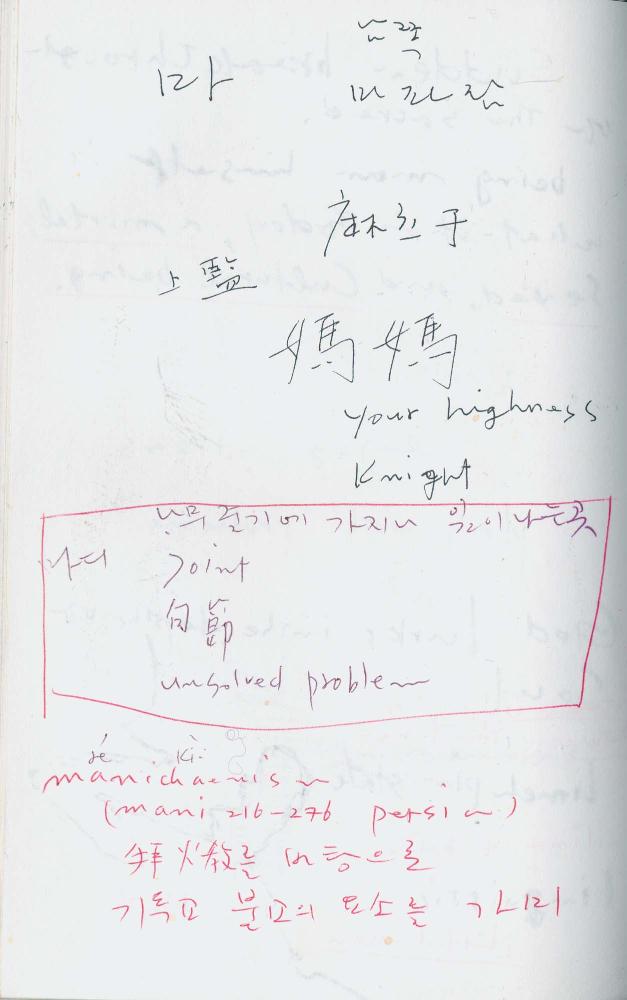 남쪽
마 마파람
麻立于
上監
媽媽
your highness
Knight
나무 줄기에 가지나 잎이 나는 곳
마디 Joint
句節
unsolved problem
ki:
manichaenism
(mani 216-276 persian)
拜火敎를 바탕으로
기독교 불교의 요소를 가미